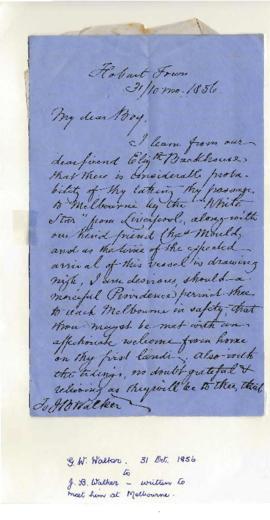 Hobart Town
31/10 mo. 1856
My dear Boy,
I learn from our
dear friend Elizth Backhouse,
that there is considerable proba-
bility of thy taking thy passage
to Melbourne by the "White
Star" from Liverpool, along with
our kind friend Chas Mould,
and as the time of the expected
arrival of this vessel is drawing
nigh, I am desirous, should a
merciful Providence permit thee
to reach Melbourne in safety, that
thou mayst be met with an
affectionate welcome from home
on thy first landg. also with
the tidings, no doubt grateful &
relieving as they will be to thee, that
To J B Walker
G. W. Walker. 31 Oct. 1856
to
J. B. Walker - written to
meet him at Melbourne.